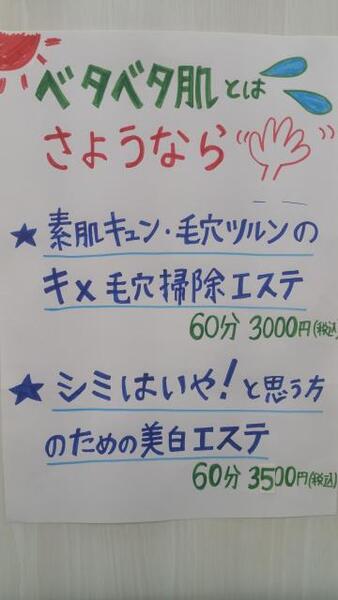 ベタベタ肌とは
さようなら
★素肌キュン・毛穴ツルンの
キメ毛穴掃除エステ
60分 3000円(税込)
★シミはいや!と思う方
のための美白エステ
60分 3500円(税込)